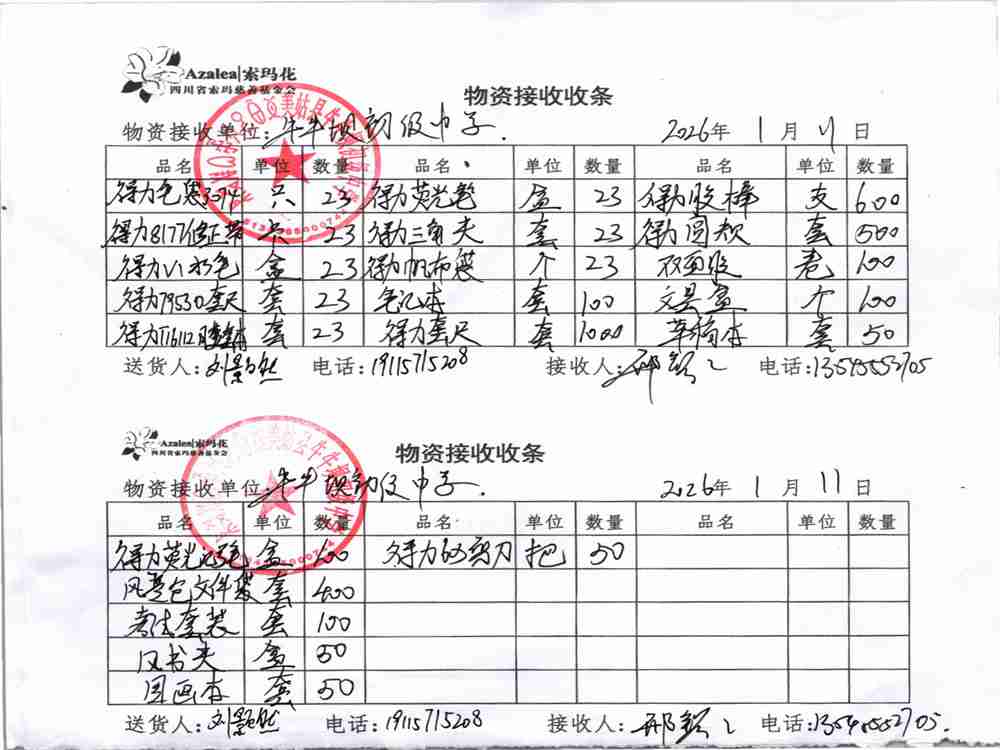 Azalea|索玛花
四川省索玛慈善基金会
物资接收收条
物资接收单位:牛牛坝初级中学. 2026年 1月 11日
品名 单位 数量 品名 单位 数量 品名 单位 数量
得力 只 23 得力荧光笔 盒 23 得力胶棒 支 600
得力8177修正带 卡 23 得力三角夹 套 23 得力圆规 套 500
得力 水 盒 23 得力帆布袋 个 23 双面胶 卷 100
得力79530套尺 套 23 笔记本 套 100 文具盒 个 100
得力 套 23 得力套尺 套 1000 草稿本 套 50
送货人: 刘 然 电话:19115715208 接收人: 电话:
Azalea|索玛花
四川省索玛慈善基金会
物资接收收条
物资接收单位:牛牛坝初级中学. 2026年 1月 11日
品名 单位 数量 品名 单位 数量 品名 单位 数量
得力荧光 盒 100 得力 剪刀 把 50
风琴包文件袋 套 400
考试套装 套 100
书夹 盒 50
图画本 套 50
送货人: 刘 然 电话:19115715208 接收人: 电话: